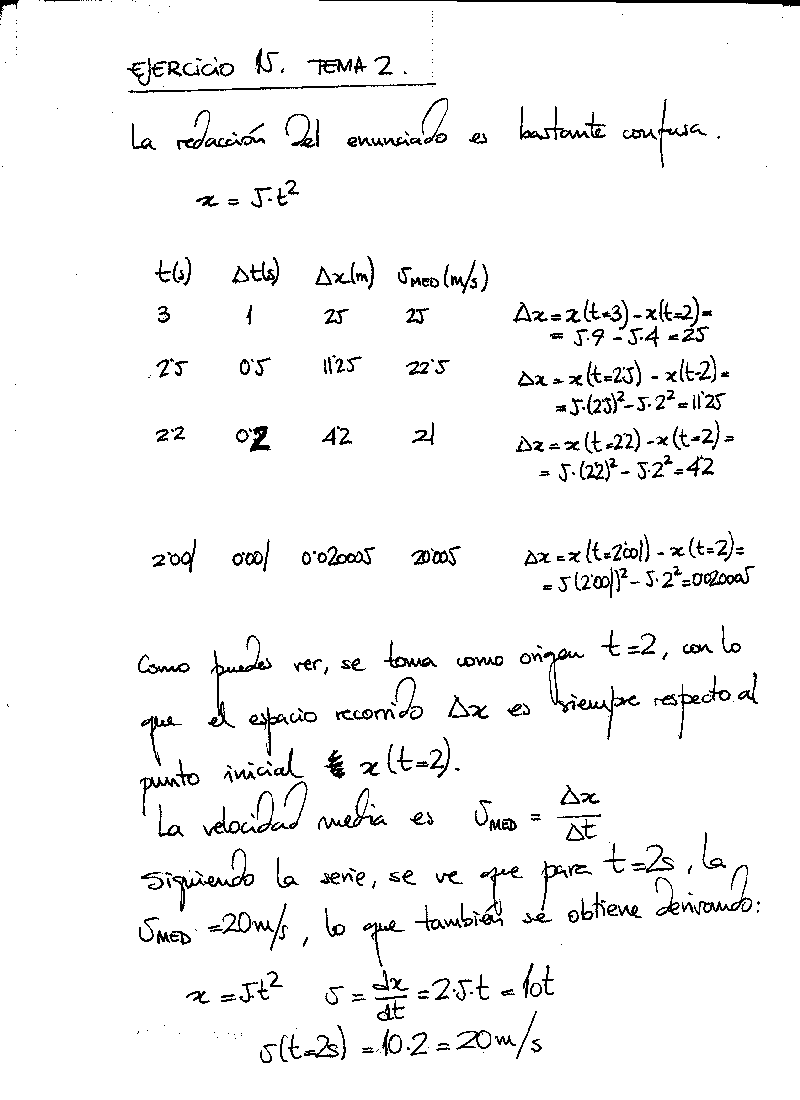 EJERCICIO 15. TEMA 2.
La redacción del enunciado es bastante confusa.
x = 5·t²
t(s) Δt(s) Δx(m) vMED(m/s)
3 1 25 25 Δx = x(t=3) - x(t=2) =
= 5·9 - 5·4 = 25
2'5 0'5 11'25 22'5 Δx = x(t=2'5) - x(t=2) =
= 5·(2'5)² - 5·2² = 11'25
2'2 0'2 4'2 21 Δx = x(t=2'2) - x(t=2) =
= 5·(2'2)² - 5·2² = 4'2
2'001 0'001 0'020005 20'005 Δx = x(t=2'001) - x(t=2) =
= 5(2'001)² - 5·2² = 0'020005
Como puedes ver, se toma como origen t=2, con lo
que el espacio recorrido Δx es siempre respecto al
punto inicial x(t=2).
La velocidad media es vMED = Δx/Δt
Siguiendo la serie, se ve que para t=2s, la
vMED = 20m/s, lo que también se obtiene derivando:
x = 5t² v = dx/dt = 2·5·t = 10t
v(t=2s) = 10·2 = 20m/s